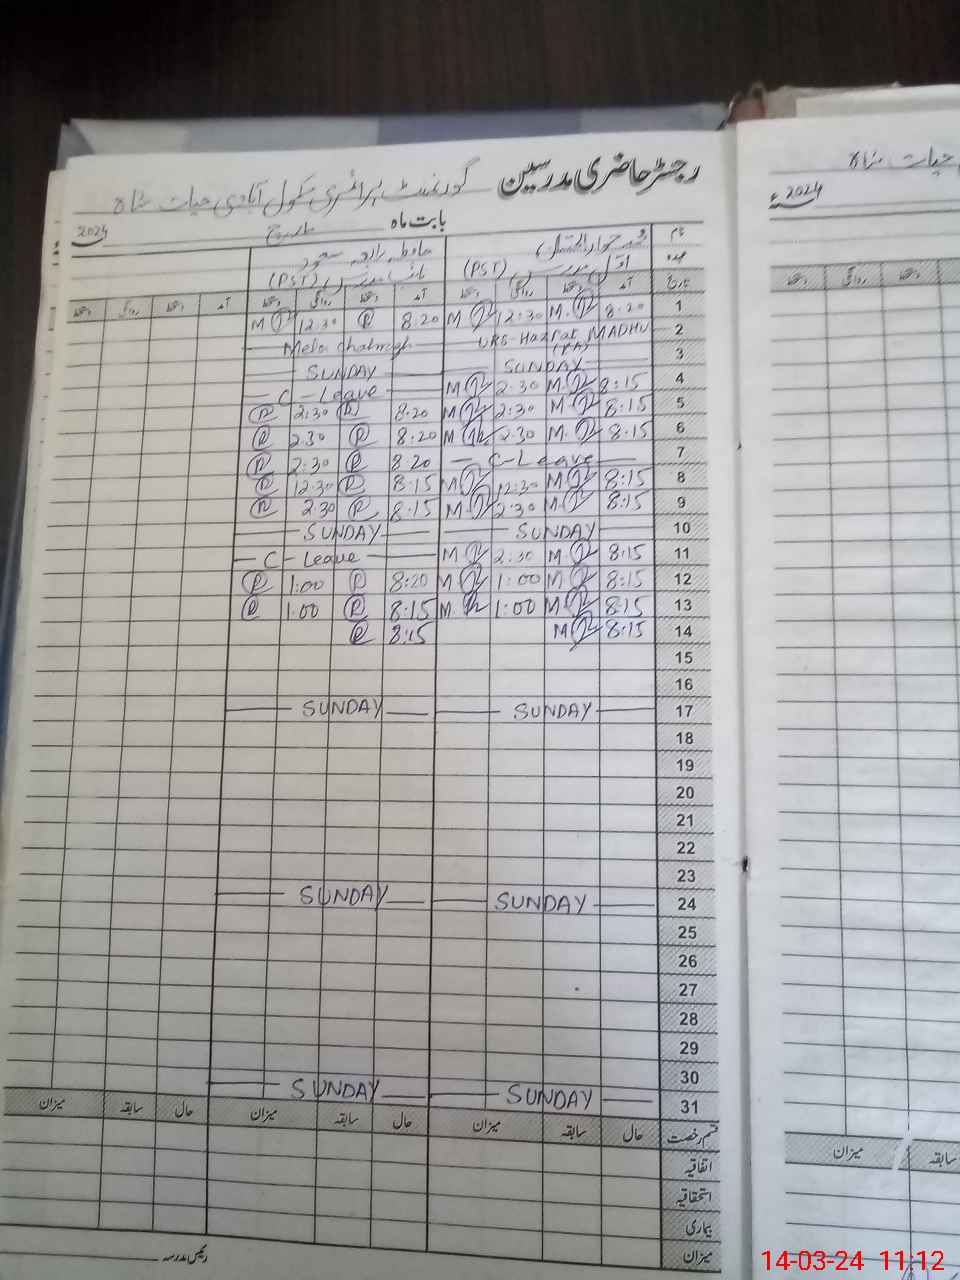 رجسٹر حاضری مدرسین گورنمنٹ پرائمری سکول آبادی حیات شاہ
بابت ماہ مارچ 2024
نام
عہدہ اول مدرس (PST) (PST)
تاریخ آمد دستخط روانگی دستخط آمد دستخط روانگی دستخط آمد دستخط روانگی دستخط
1 8:20 M. 12:30 M 8:20 R 12:30 M
2 URS-Hazrat MADHU Mela Chahragh
3 SUNDAY SUNDAY
4 8:15 M. 2:30 M C-Leave
5 8:15 M. 2:30 M 8:20 R 2:30 R
6 8:15 M. 2:30 M 8:20 R 2:30 R
7 C-Leave 8:20 R 2:30 R
8 8:15 M 12:30 M 8:15 R 12:30 R
9 8:15 M. 2:30 M. 8:15 R 2:30 R
10 SUNDAY SUNDAY
11 8:15 M. 2:30 M C-Leave
12 8:15 M. 1:00 M 8:20 R 1:00 R
13 8:15 M. 1:00 M. 8:15 R 1:00 R
14 8:15 M 8:15 R
15
16
17 SUNDAY SUNDAY
18
19
20
21
22
23
24 SUNDAY SUNDAY
25
26
27
28
29
30
31 SUNDAY SUNDAY
قسم رخصت حال سابقہ میزان حال سابقہ میزان حال سابقہ میزان
اتفاقیہ
استحقاقیہ
بیماری
میزان
رئیس مدرسہ
حیات شاہ
2024
دستخط روانگی دستخط
میزان سابقہ
14-03-24 11:12